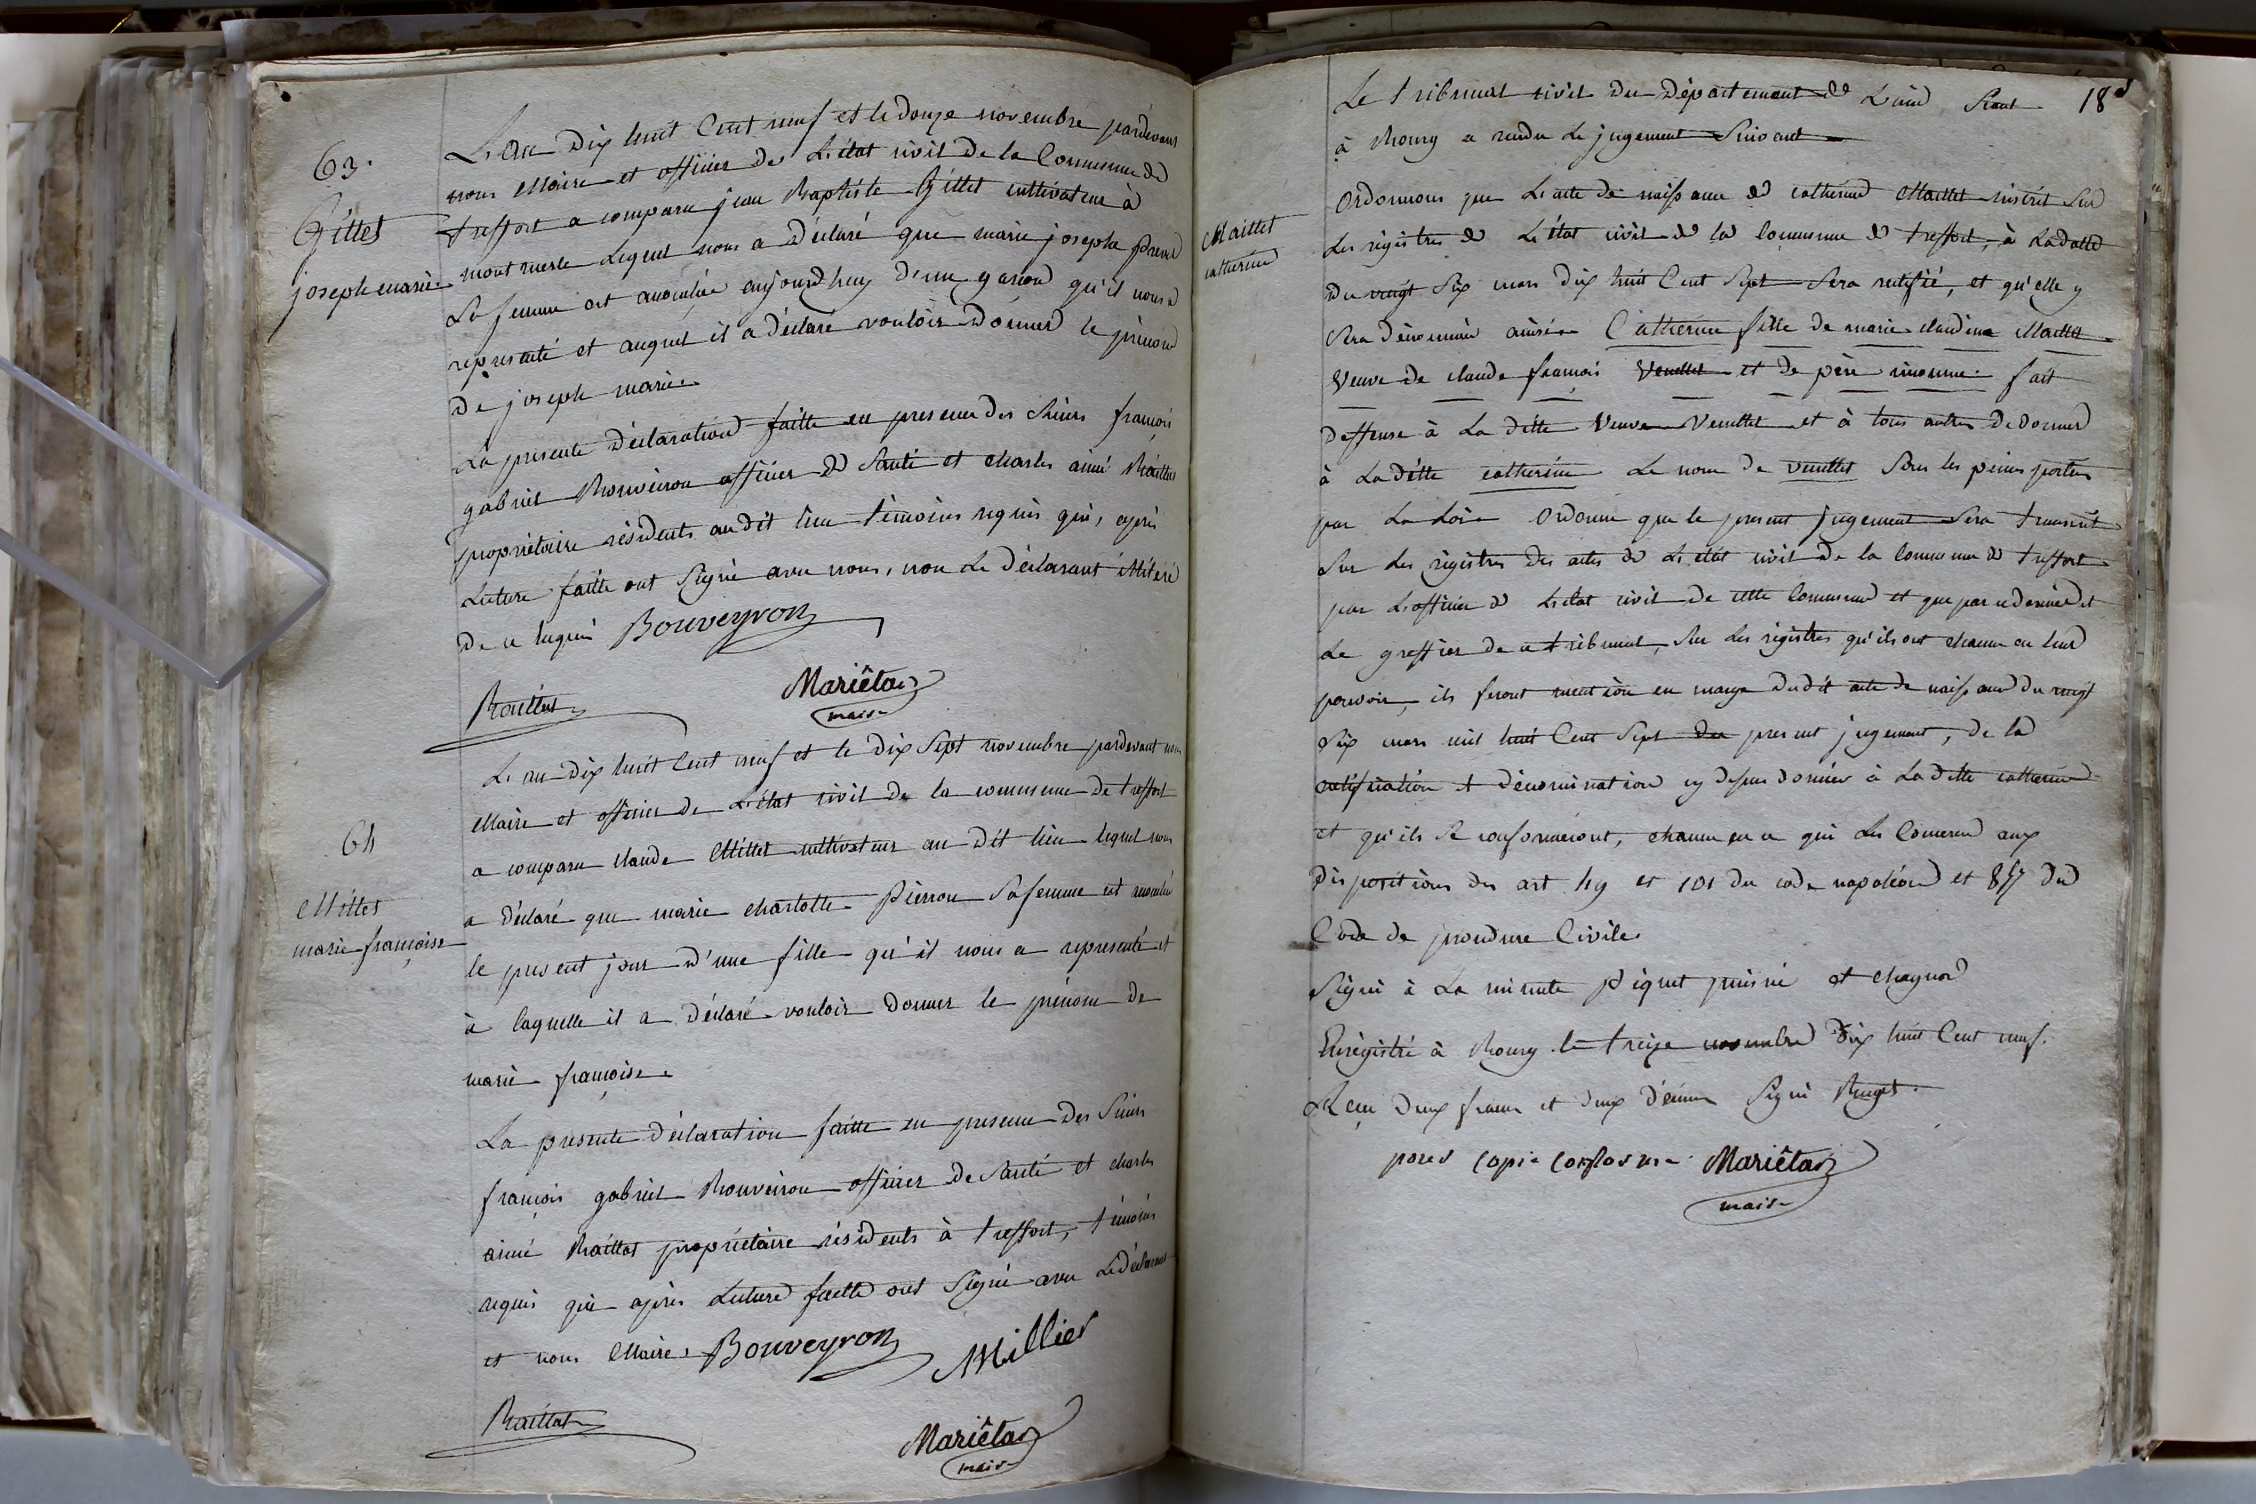 63.
Gillet
joseph marie
L'an Dix huit Cent neuf et le douze novembre pardevant
nous Maire et officier de L'état civil de la Commune de
treffort a comparu jean Baptiste Gillet cultivateur à
montmerle Lequel nous a déclaré que marie josephe
Sa femme est accouchée aujourd'huy d'un garcon qu'il nous a
representé et auquel il a déclaré vouloir donner le prénom
De joseph marie
La presente déclaration faitte en presence des Sieurs françois
gabriel Bouveiron officier de Santé et charles aimé Raillat
propriétaire résidents audit lieu témoins requis qui, après
Lecture faitte ont Signé avec nous, non Le déclarant illiteré
De ce requis Bouveyron
Raillat
Mariétan
maire
64
Millet
marie françoise
L'an dix huit Cent neuf et le dix Sept novembre pardevant nous
Maire et officier de L'état civil de la commune de treffort
a comparu Claude Millet cultivateur au dit lieu lequel nous
a déclaré que marie charlotte Pierron Sa femme est accouchée
le present jour d'une fille qu'il nous a representé et
à laquelle il a déclaré vouloir donner le prénom de
marie françoise
La presente déclaration faitte en presence des Sieurs
françois gabriel Bouveiron officier de Santé et charles
aimé Raillat propriétaire résidents à treffort, témoins
requis qui après Lecture faitte ont Signé avec Le déclarant
et nous Maire, Bouveyron Millier
Raillat
Mariétan
maire
18
Le tribunal civil du Département de L'ain Séant
à Bourg a rendu Le jugement Suivant
Maillet
catherine
Ordonnons que L'acte de naissance de catherine Maillet inscrit Sur
Les régistres de L'état civil de la commune de treffort, à La datte
Du vingt Six mars dix huit Cent Sept Sera rectifié, et qu'elle y
Sera dénommée ainsi Catherine fille de marie claudine Maillet
Veuve de claude francois Veuillet et de père inconnu. fait
Deffense à La ditte Veuve Veuillet et à tous autres De donner
à La ditte catherine Le nom de veuillet Sous les peines portées
par La Loi Ordonne que le present jugement Sera transcrit
Sur Les régistres des actes de L'état civil de la commune de treffort
par L'officier de L'état civil de cette Commune et que par ce dernier et
Le greffier de ce tribunal, Sur Les régistres qu'ils ont chacun en leur
pouvoir, ils feront mention en marge dudit acte de naissance du vingt
Six mars mil huit Cent Sept du present jugement, de la
rectification et dénomination cy dessus donnée à La ditte catherine
et qu'ils Se conformeront, chacun en ce qui Les Concerne aux
Dispositions des art 49 et 101 du code napoléon et 857 du
Code de procedure Civile.
Signé à La minute Piquet puisné et chagnon
Enrégistré à Bourg le treize novembre dix huit Cent neuf.
Reçu deux francs et deux décimes Signé
pour Copie Conforme Mariétan
maire